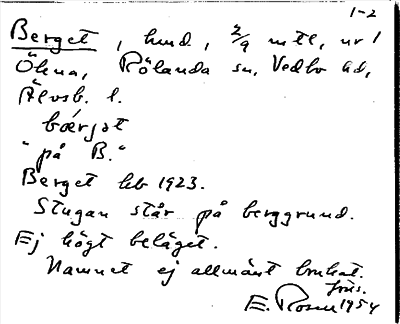 1-2
Berget, hmd, 2/9 mtl, nr 1
Ökna, Rölanda sn, Vedbo hd,
Älvsb. l.
bærjət
"på B."
Berget hb 1923.
Stugan står på berggrund.
Ej högt beläget.
Namnet ej allmänt brukat.
E. Rosen 1954